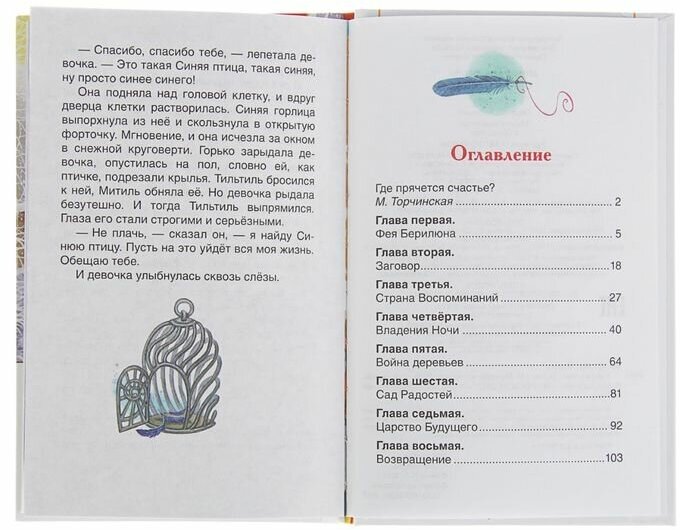 — Спасибо, спасибо тебе, — лепетала де-
вочка. — Это такая Синяя птица, такая синяя,
ну просто синее синего!
Она подняла над головой клетку, и вдруг
дверца клетки растворилась. Синяя горлица
выпорхнула из неё и скользнула в открытую
форточку. Мгновение, и она исчезла за окном
в снежной круговерти. Горько зарыдала де-
вочка, опустилась на пол, словно ей, как
птичке, подрезали крылья. Тильтиль бросился
к ней, Митиль обняла её. Но девочка рыдала
безутешно. И тогда Тильтиль выпрямился.
Глаза его стали строгими и серьёзными.
— Не плачь, — сказал он, — я найду Си-
нюю птицу. Пусть на это уйдёт вся моя жизнь.
Обещаю тебе.
И девочка улыбнулась сквозь слёзы.
Оглавление
Где прячется счастье?
М. Торчинская ........ 2
Глава первая.
Фея Берилюна ........ 5
Глава вторая.
Заговор ........ 18
Глава третья.
Страна Воспоминаний ........ 27
Глава четвёртая.
Владения Ночи ........ 40
Глава пятая.
Война деревьев ........ 64
Глава шестая.
Сад Радостей ........ 81
Глава седьмая.
Царство Будущего ........ 92
Глава восьмая.
Возвращение ........ 103